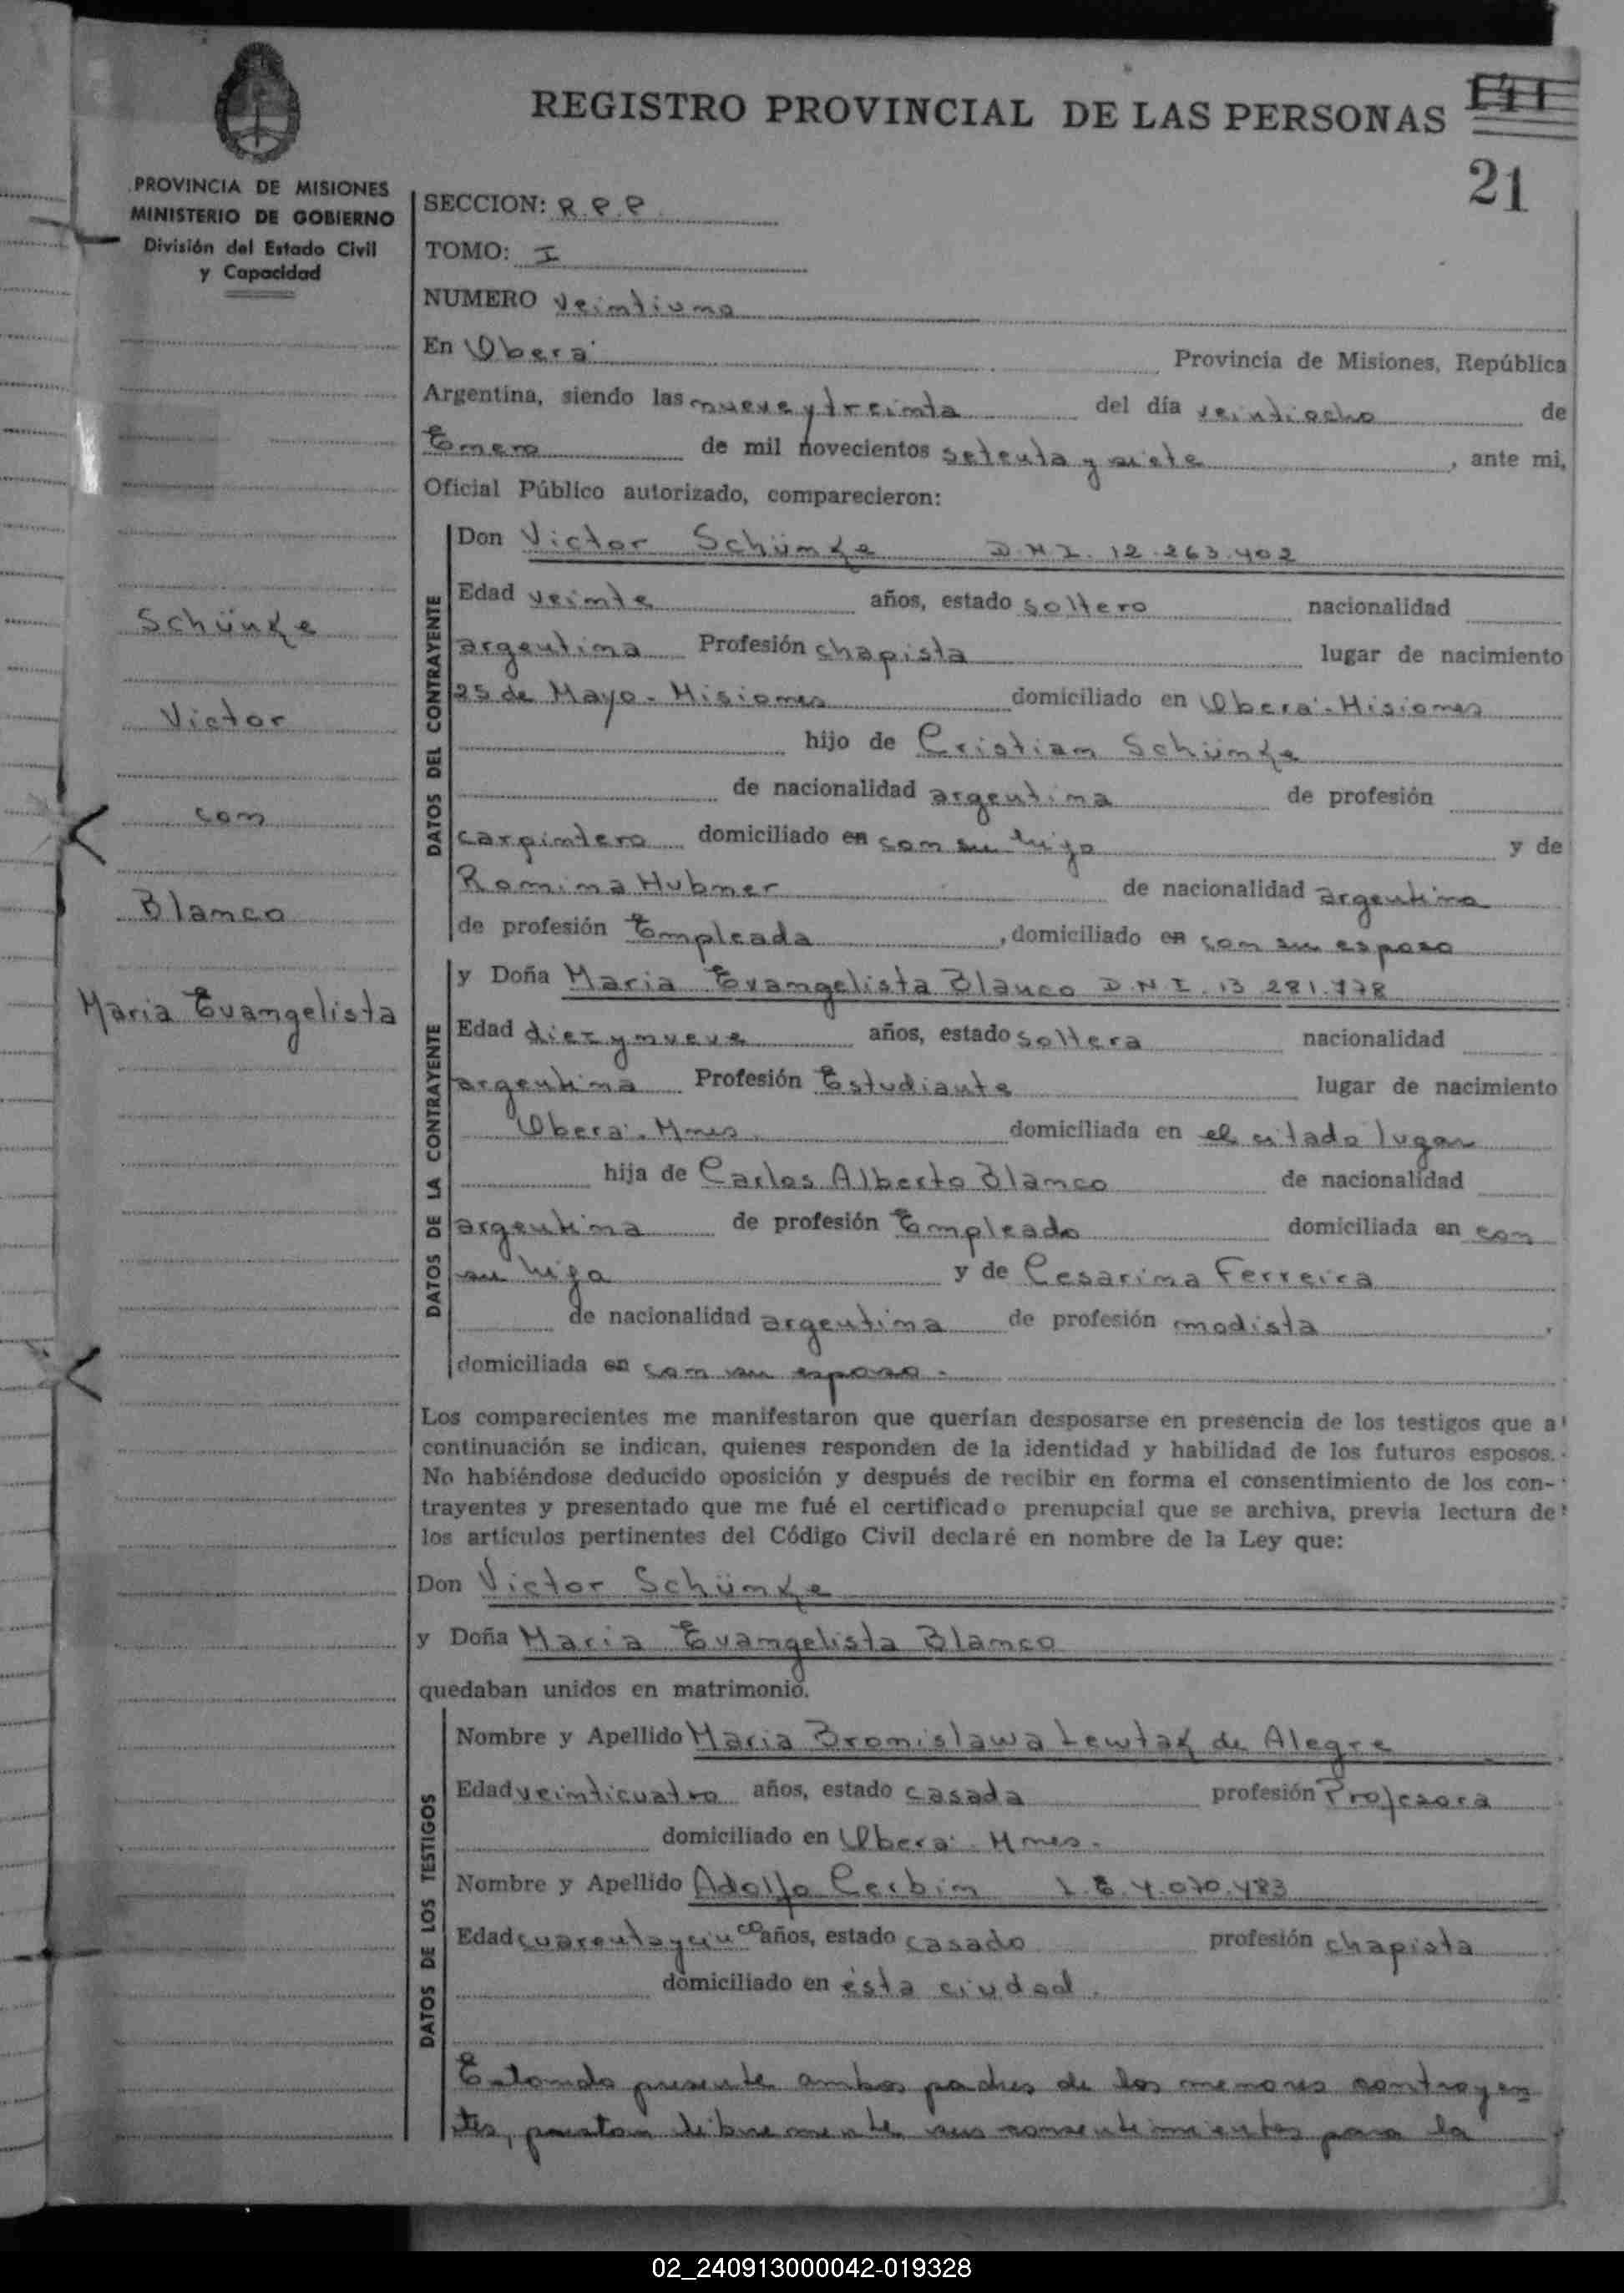 REGISTRO PROVINCIAL DE LAS PERSONAS
21
PROVINCIA DE MISIONES
MINISTERIO DE GOBIERNO
División del Estado Civil
y Capacidad
SECCION: R.P.P
TOMO: I
NUMERO veintiuno
En Oberá Provincia de Misiones, República
Argentina, siendo las nueve y treinta del día veintiocho de
Enero de mil novecientos setenta y siete, ante mi,
Oficial Público autorizado, comparecieron:
Schünke
Victor
con
Blanco
Maria Evangelista
DATOS DEL CONTRAYENTE
Don Victor Schünke D.N.I. 12.263.402
Edad veinte años, estado soltero nacionalidad
argentina Profesión chapista lugar de nacimiento
25 de Mayo - Misiones domiciliado en Oberá - Misiones
hijo de Cristian Schünke
de nacionalidad argentina de profesión
carpintero domiciliado en con su hijo y de
Romina Hubner de nacionalidad argentina
de profesión Empleada, domiciliado en con su esposo
DATOS DE LA CONTRAYENTE
y Doña Maria Evangelista Blanco D.N.I. 13 281.778
Edad diez y nueve años, estado soltera nacionalidad
argentina Profesión Estudiante lugar de nacimiento
Oberá. Mnes. domiciliada en el citado lugar
hija de Carlos Alberto Blanco de nacionalidad
argentina de profesión Empleado domiciliada en con
su hija y de Cesarina Ferreira
de nacionalidad argentina de profesión modista,
domiciliada en con su esposo.
Los comparecientes me manifestaron que querían desposarse en presencia de los testigos que a
continuación se indican, quienes responden de la identidad y habilidad de los futuros esposos.
No habiéndose deducido oposición y después de recibir en forma el consentimiento de los con-
trayentes y presentado que me fué el certificado prenupcial que se archiva, previa lectura de
los artículos pertinentes del Código Civil declaré en nombre de la Ley que:
Don Victor Schünke
y Doña Maria Evangelista Blanco
quedaban unidos en matrimonio.
DATOS DE LOS TESTIGOS
Nombre y Apellido Maria Bronislawa Lewtak de Alegre
Edad veinticuatro años, estado casada profesión Profesora
domiciliado en Oberá. Mnes.
Nombre y Apellido Adolfo Cerbin L.E. 4.070.483
Edad cuarenta y cinco años, estado casado profesión chapista
domiciliado en ésta ciudad.
Estando presente ambos padres de los menores contrayen
tes, prestan libremente sus consentimientos para la
02_240913000042-019328